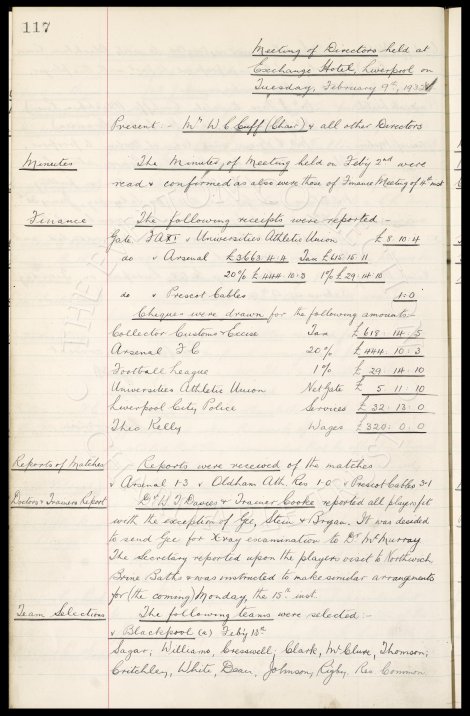 117
Meeting of Directors held at
Exchange Hotel, Liverpool on
Tuesday, February 9th, 193
Present :- Mr W. C. Cuff (Chair) & all other Directors
Minutes
The Minutes, of Meeting held on Feby 2nd were
read & confirmed as also were those of Finance Meeting of 4th inst
Finance
The following receipts were reported -
Gate "A" XI v Universities Athletic Union £8.10.4
do v Arsenal £3663.4.4 Tax £615.15.11
20% £444.10.3 1% £29.14.10
do v Prescot Cables 1.0
Cheques were drawn for the following amounts:-
Collector Customs & Excise Tax £618.14.5
Arsenal F C 20% £444.10.3
Football League 1% £29.14.10
Universities Athletic Union Net Gate £5.11.10
Liverpool City Police Services £32.13.0
Theo Kelly Wages £320.0.0
Reports of Matches
Reports were received of the matches
v Arsenal 1-3 v Oldham Ath. Res 1-0 v Prescot Cables 3-1
Doctors & Trainers Report
Dr W. J. Davies & Trainer Cooke reported all players fit
with the exception of Gee, Stein & Bryan. It was decided
to send Gee for Xray examination to Dr McMurray.
The Secretary reported upon the players visit to Northwich
Brine Baths & was instructed to make similar arrangements
for (the coming) Monday, the 15th inst.
Team Selections
The following teams were selected :-
v Blackpool (a) Feby 13th
Sagar; Williams, Cresswell; Clark, McClure, Thomson;
Critchley, White, Dean, Johnson, Rigby Res Common